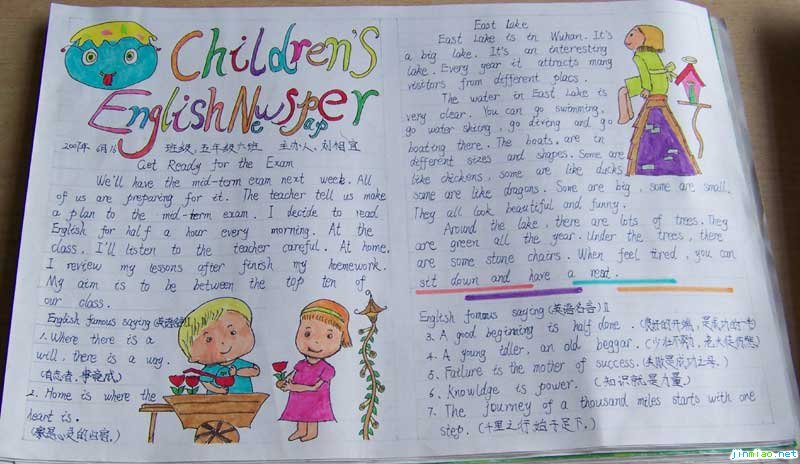 Children's
English Newspaper
2007年 6月 班级：五年级六班 主办人：刘相宜
Get Ready for the Exam
We'll have the mid-term exam next week. All
of us are preparing for it. The teacher tell us make
a plan to the mid-term exam. I decide to read
English for half a hour every morning. At the
class. I'll listen to the teacher careful. At home.
I review my lessons after finish my homework.
My aim is to be between the top ten of
our class.
English famous saying (英语名言) I
1. Where there is a
will, there is a way.
(有志者，事竟成)
2. Home is where the
heart is.
(家是心灵的归宿。)
East Lake
East Lake is in Wuhan. It's
a big lake. It's an interesting
lake. Every year it attracts many
visitors from different placs.
The water in East Lake is
very clear. You can go swimming,
go water skiing, go diving and go
boating there. The boats, are in
different sizes and shapes. Some are
like chickens, some are like ducks
some are like dragons. Some are big, some are small.
They all look beautiful and funny.
Around the lake, there are lots of trees. They
are green all the year. Under the trees, there
are some stone chairs. When feel tired, you can
sit down and have a rest.
English famous saying (英语名言) II
3. A good beginning is half done. (良好的开端，是成功的一半)
4. A young idler, an old beggar. (少壮不努力，老大徒伤悲)
5. Failure is the mother of success. (失败是成功之母。)
6. Knowldge is power. (知识就是力量)
7. The journey of a thousand miles starts with one
step. (千里之行始于足下。)
jinmiao.net